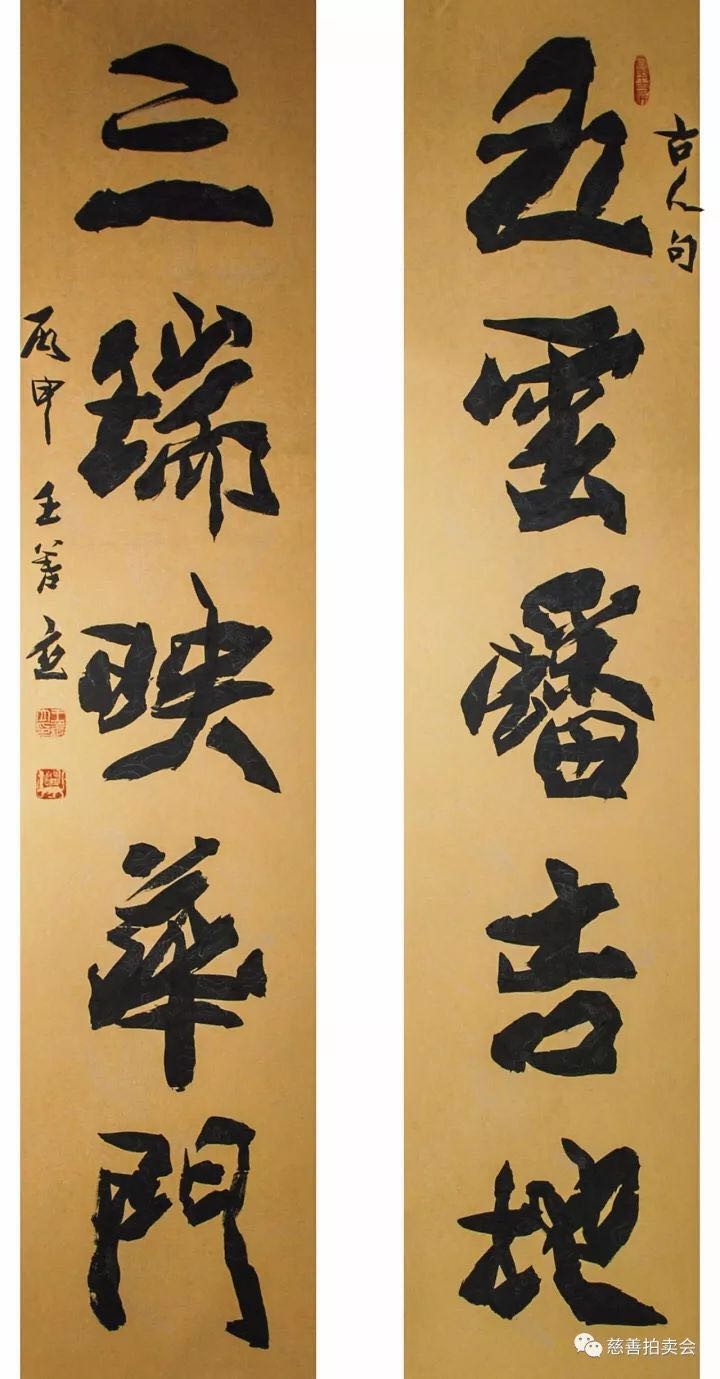 古人句
五雲蟠吉地
三瑞映華門
丙申王善应
慈善拍卖会